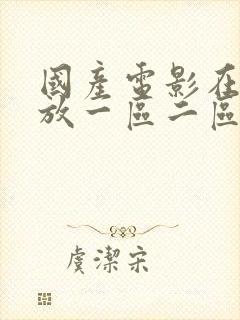 國產電影在
放一區二區
虞潔宋